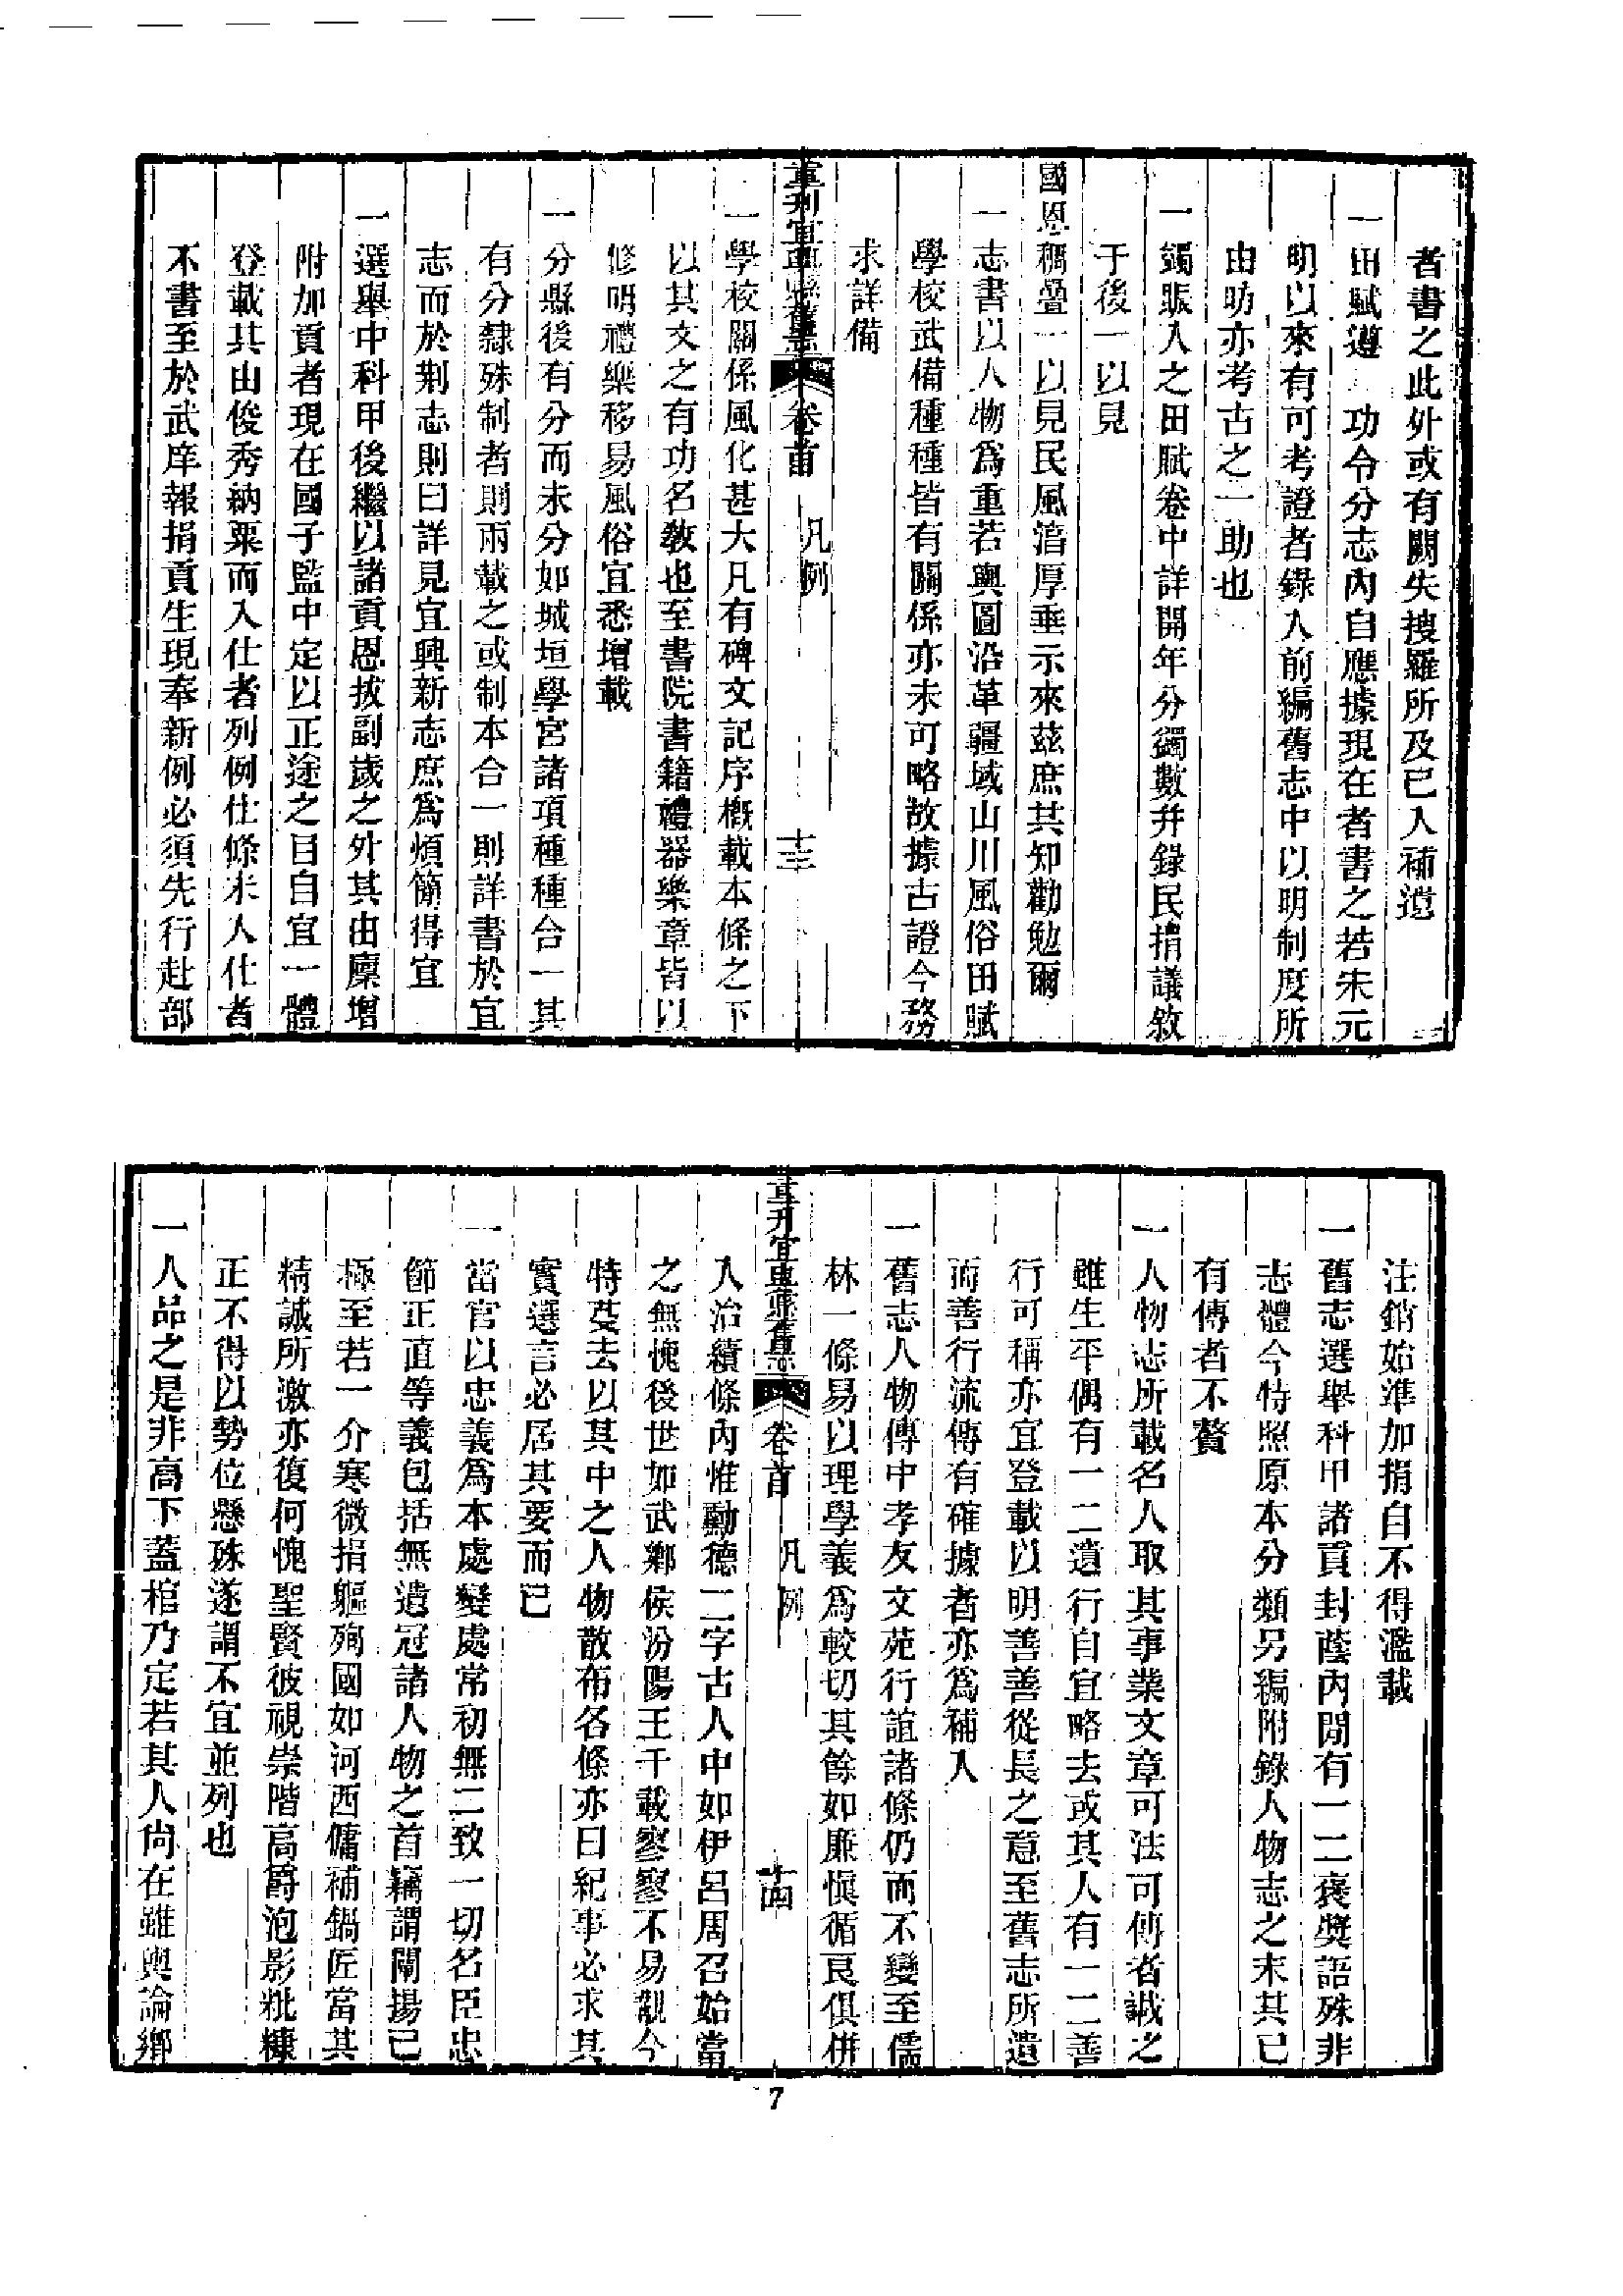 者書之此外或有闕失搜羅所及已入補遺
一田賦遵 功令分志內自應據現在者書之若宋元
明以來有可考證者錄入前編舊志中以明制度所
由昉亦考古之一助也
一蠲賑入之田賦卷中詳開年分蠲數幷錄民捐議敘
于後一以見
國恩稠疊一以見民風湻厚垂示來茲庶其知勸勉爾
一志書以人物爲重若輿圖沿革疆域山川風俗田賦
學校武備種種皆有關係亦未可略故據古證今務
求詳備
重刊宜興縣舊志 卷首 凡例 十三
一學校關係風化甚大凡有碑文記序槪載本條之下
以其文之有功名敎也至書院書籍禮器樂章皆以
修明禮樂移易風俗宜悉增載
一分縣後有分而未分如城垣學宮諸項種種合一其
有分隸殊制者則兩載之或制本合一則詳書於宜
志而於荆志則曰詳見宜興新志庶爲煩簡得宜
一選舉中科甲後繼以諸貢恩拔副歲之外其由廩增
附加貢者現在國子監中定以正途之目自宜一體
登載其由俊秀納粟而入仕者列例仕條未入仕者
不書至於武庠報捐貢生現奉新例必須先行赴部
注銷始準加捐自不得濫載
一舊志選舉科甲諸貢封蔭內閒有一二褒奬語殊非
志體今特照原本分類另編附錄人物志之末其已
有傳者不贅
一人物志所載名人取其事業文章可法可傳者誌之
雖生平偶有一二遺行自宜略去或其人有一二善
行可稱亦宜登載以明善善從長之意至舊志所遺
而善行流傳有確據者亦爲補入
一舊志人物傳中孝友文苑行誼諸條仍而不變至儒
林一條易以理學義爲較切其餘如廉愼循良俱併
重刊宜興縣舊志 卷首 凡例 十四
入治績條內惟勳德二字古人中如伊呂周召始當
之無愧後世如武鄉侯汾陽王千載寥寥不易覯今
特芟去以其中之人物散布各條亦曰紀事必求其
實選言必居其要而已
一當官以忠義爲本處變處常初無二致一切名臣忠
節正直等義包括無遺冠諸人物之首竊謂闡揚已
極至若一介寒微捐軀殉國如河西傭補鍋匠當其
精誠所激亦復何愧聖賢彼視崇階高爵泡影粃糠
正不得以勢位懸殊遂謂不宜並列也
一人品之是非高下蓋棺乃定若其人尙在雖輿論鄉
7